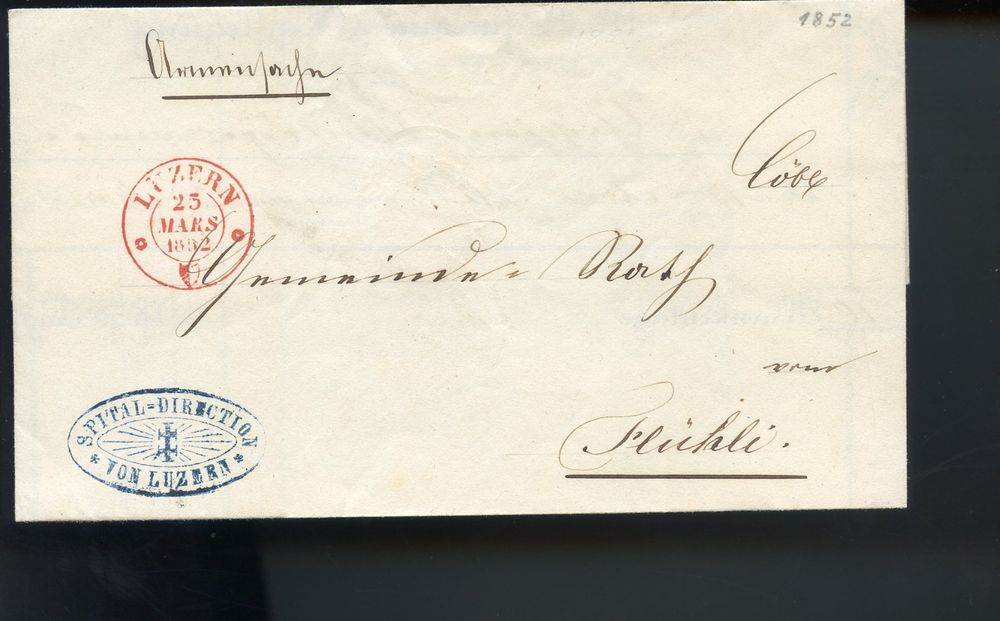 1852
Armensache
Löbl
LUZERN
25
MARS
1852
Gemeinde-Rath
von
Flühli.
SPITAL=DIRECTION
VON LUZERN